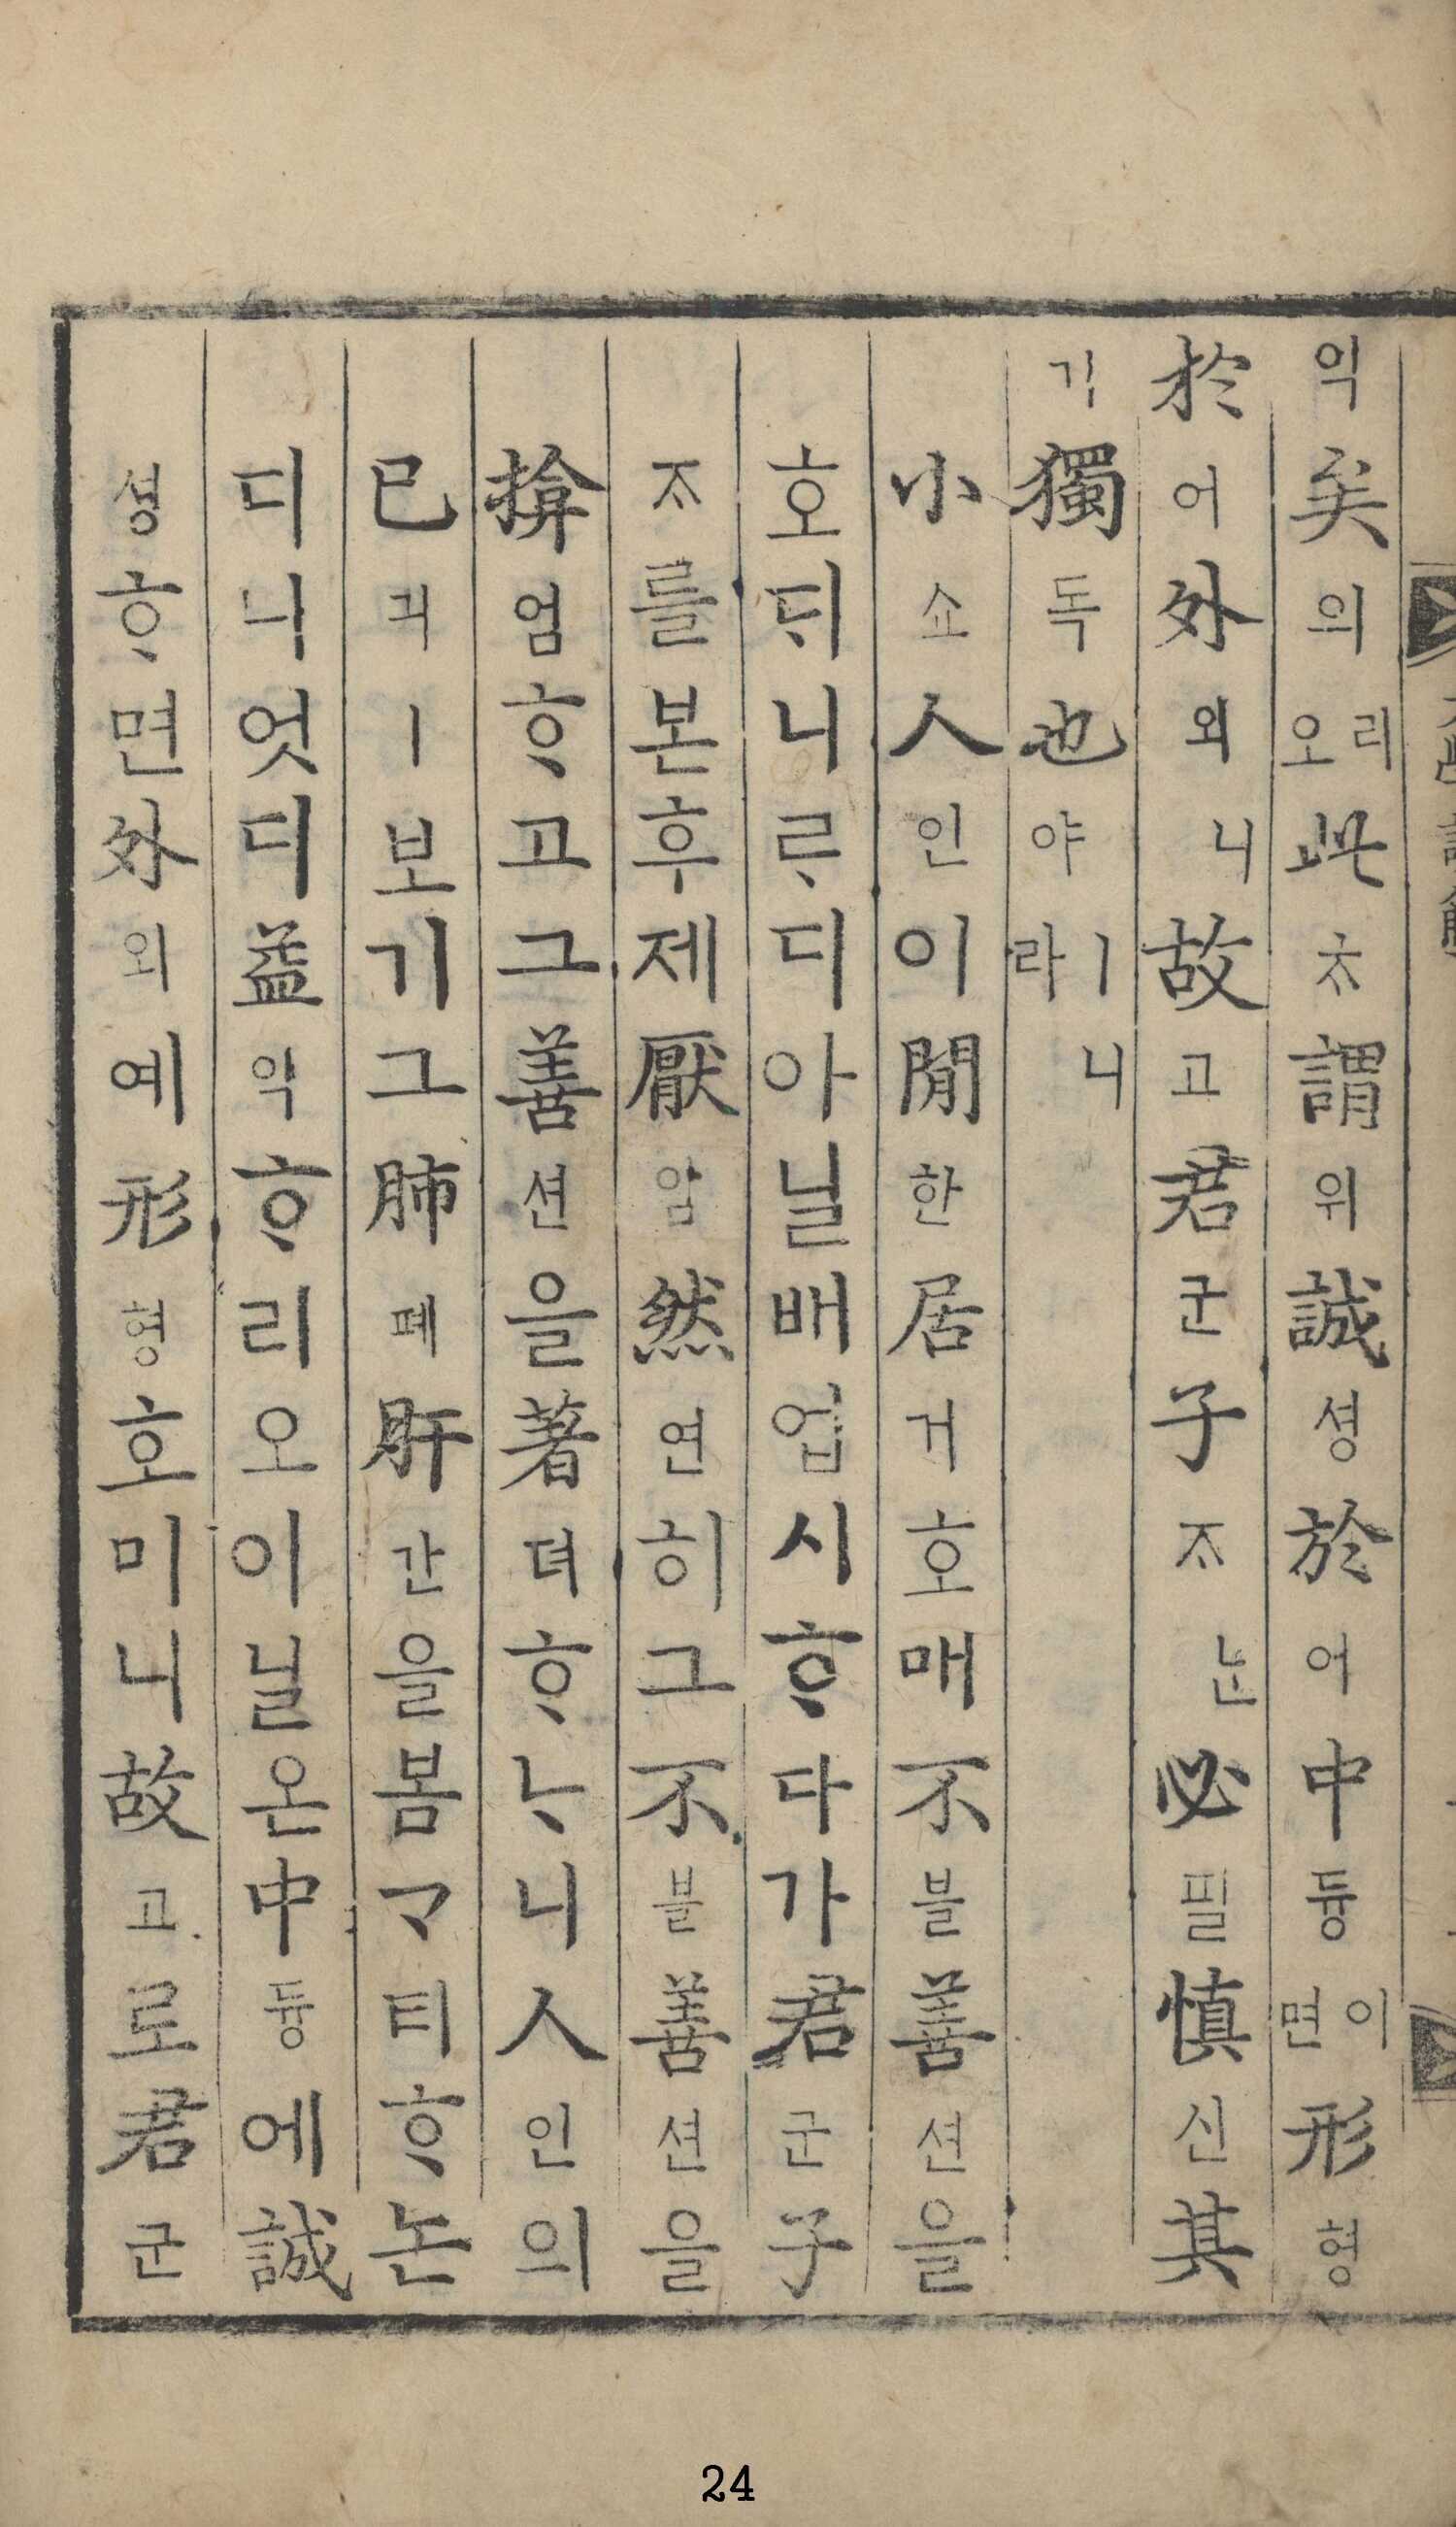 익矣의리오此ᄎᆞ謂위誠셩於어中듕이면形형
於어外외니故고君군子ᄌᆞᄂᆞᆫ必필愼신其
기獨독也야ㅣ니라
小쇼人인이閒한居거호매不블善션을
호ᄃᆡ니ᄅᆞ디아닐배업시ᄒᆞ다가君군子
ᄌᆞ를본후제厭암然연히그不블善션을
揜엄ᄒᆞ고그善션을著뎌ᄒᆞᄂᆞ니人인의
己긔ㅣ보기그肺폐肝간을봄ᄀᆞ티ᄒᆞ논
디니엇디益익ᄒᆞ리오이닐온中듕에誠
셩ᄒᆞ면外외예形형호미니故고로君군
24